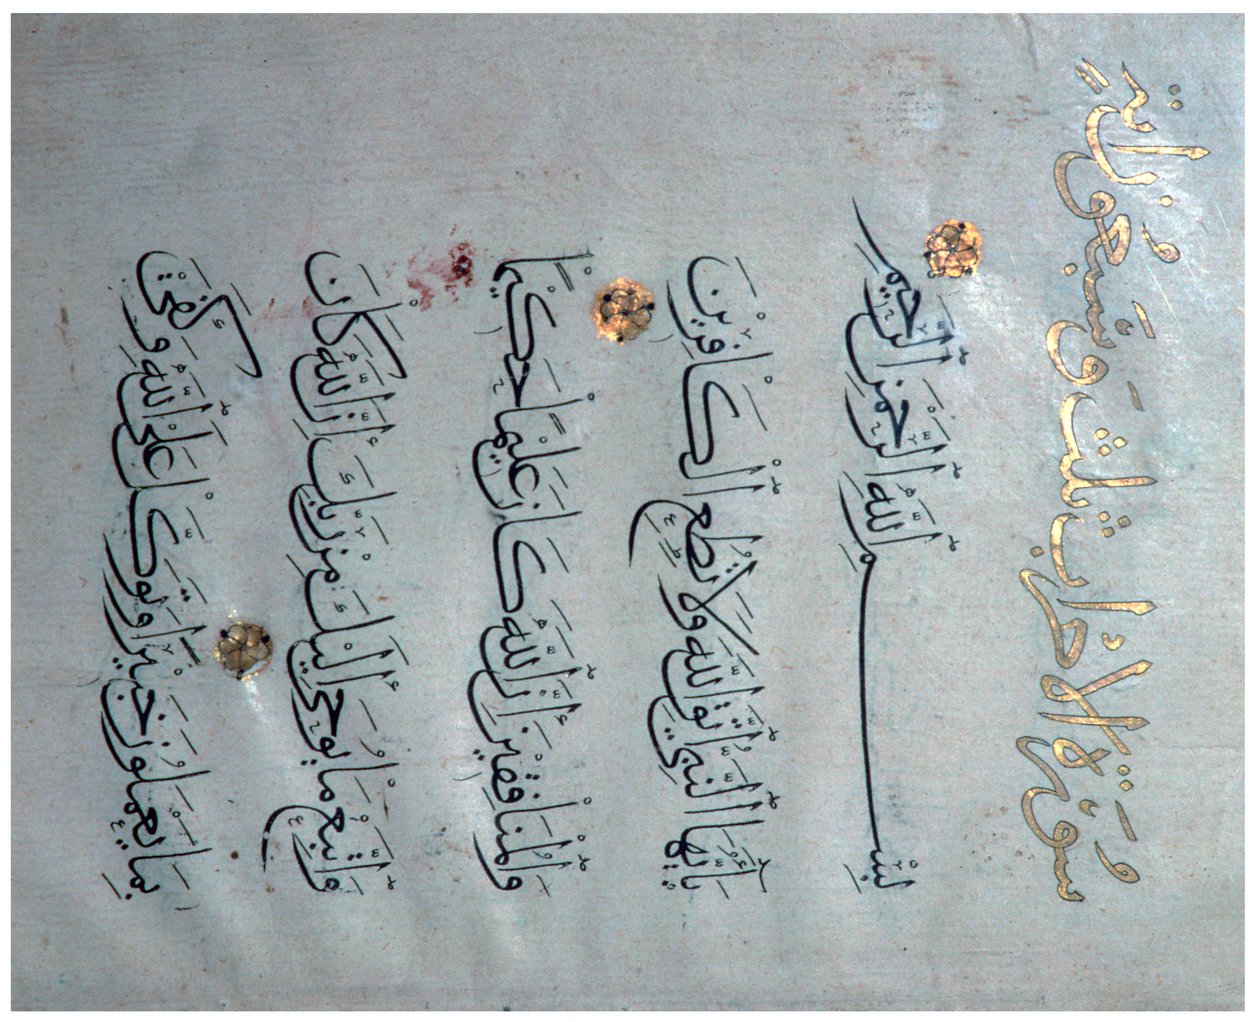 سُورَةُ الاَحْزَابِ ثَلَثٌ وَسَبْعُونَ اٰيَة
بِسْمِ اللَّهِ الرَّحْمٰنِ الرَّحِيمِ
يَاَيُّهَا النَّبِيُّ اتَّقِ اللَّهَ وَلَا تُطِعِ الْكَافِرِينَ
وَالْمُنَافِقِينَ إِنَّ اللَّهَ كَانَ عَلِيمًا حَكِيمًا
وَاتَّبِعْ مَا يُوحَى إِلَيْكَ مِنْ رَبِّكَ إِنَّ اللَّهَ كَانَ
بِمَا يَعْمَلُونَ خَبِيرًا وَتَوَكَّلْ عَلَى اللَّهِ وَكَفَى